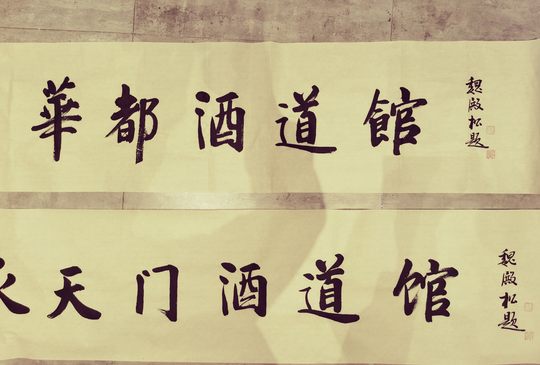 華都酒道館
魏殿松题
天门酒道馆
魏殿松题